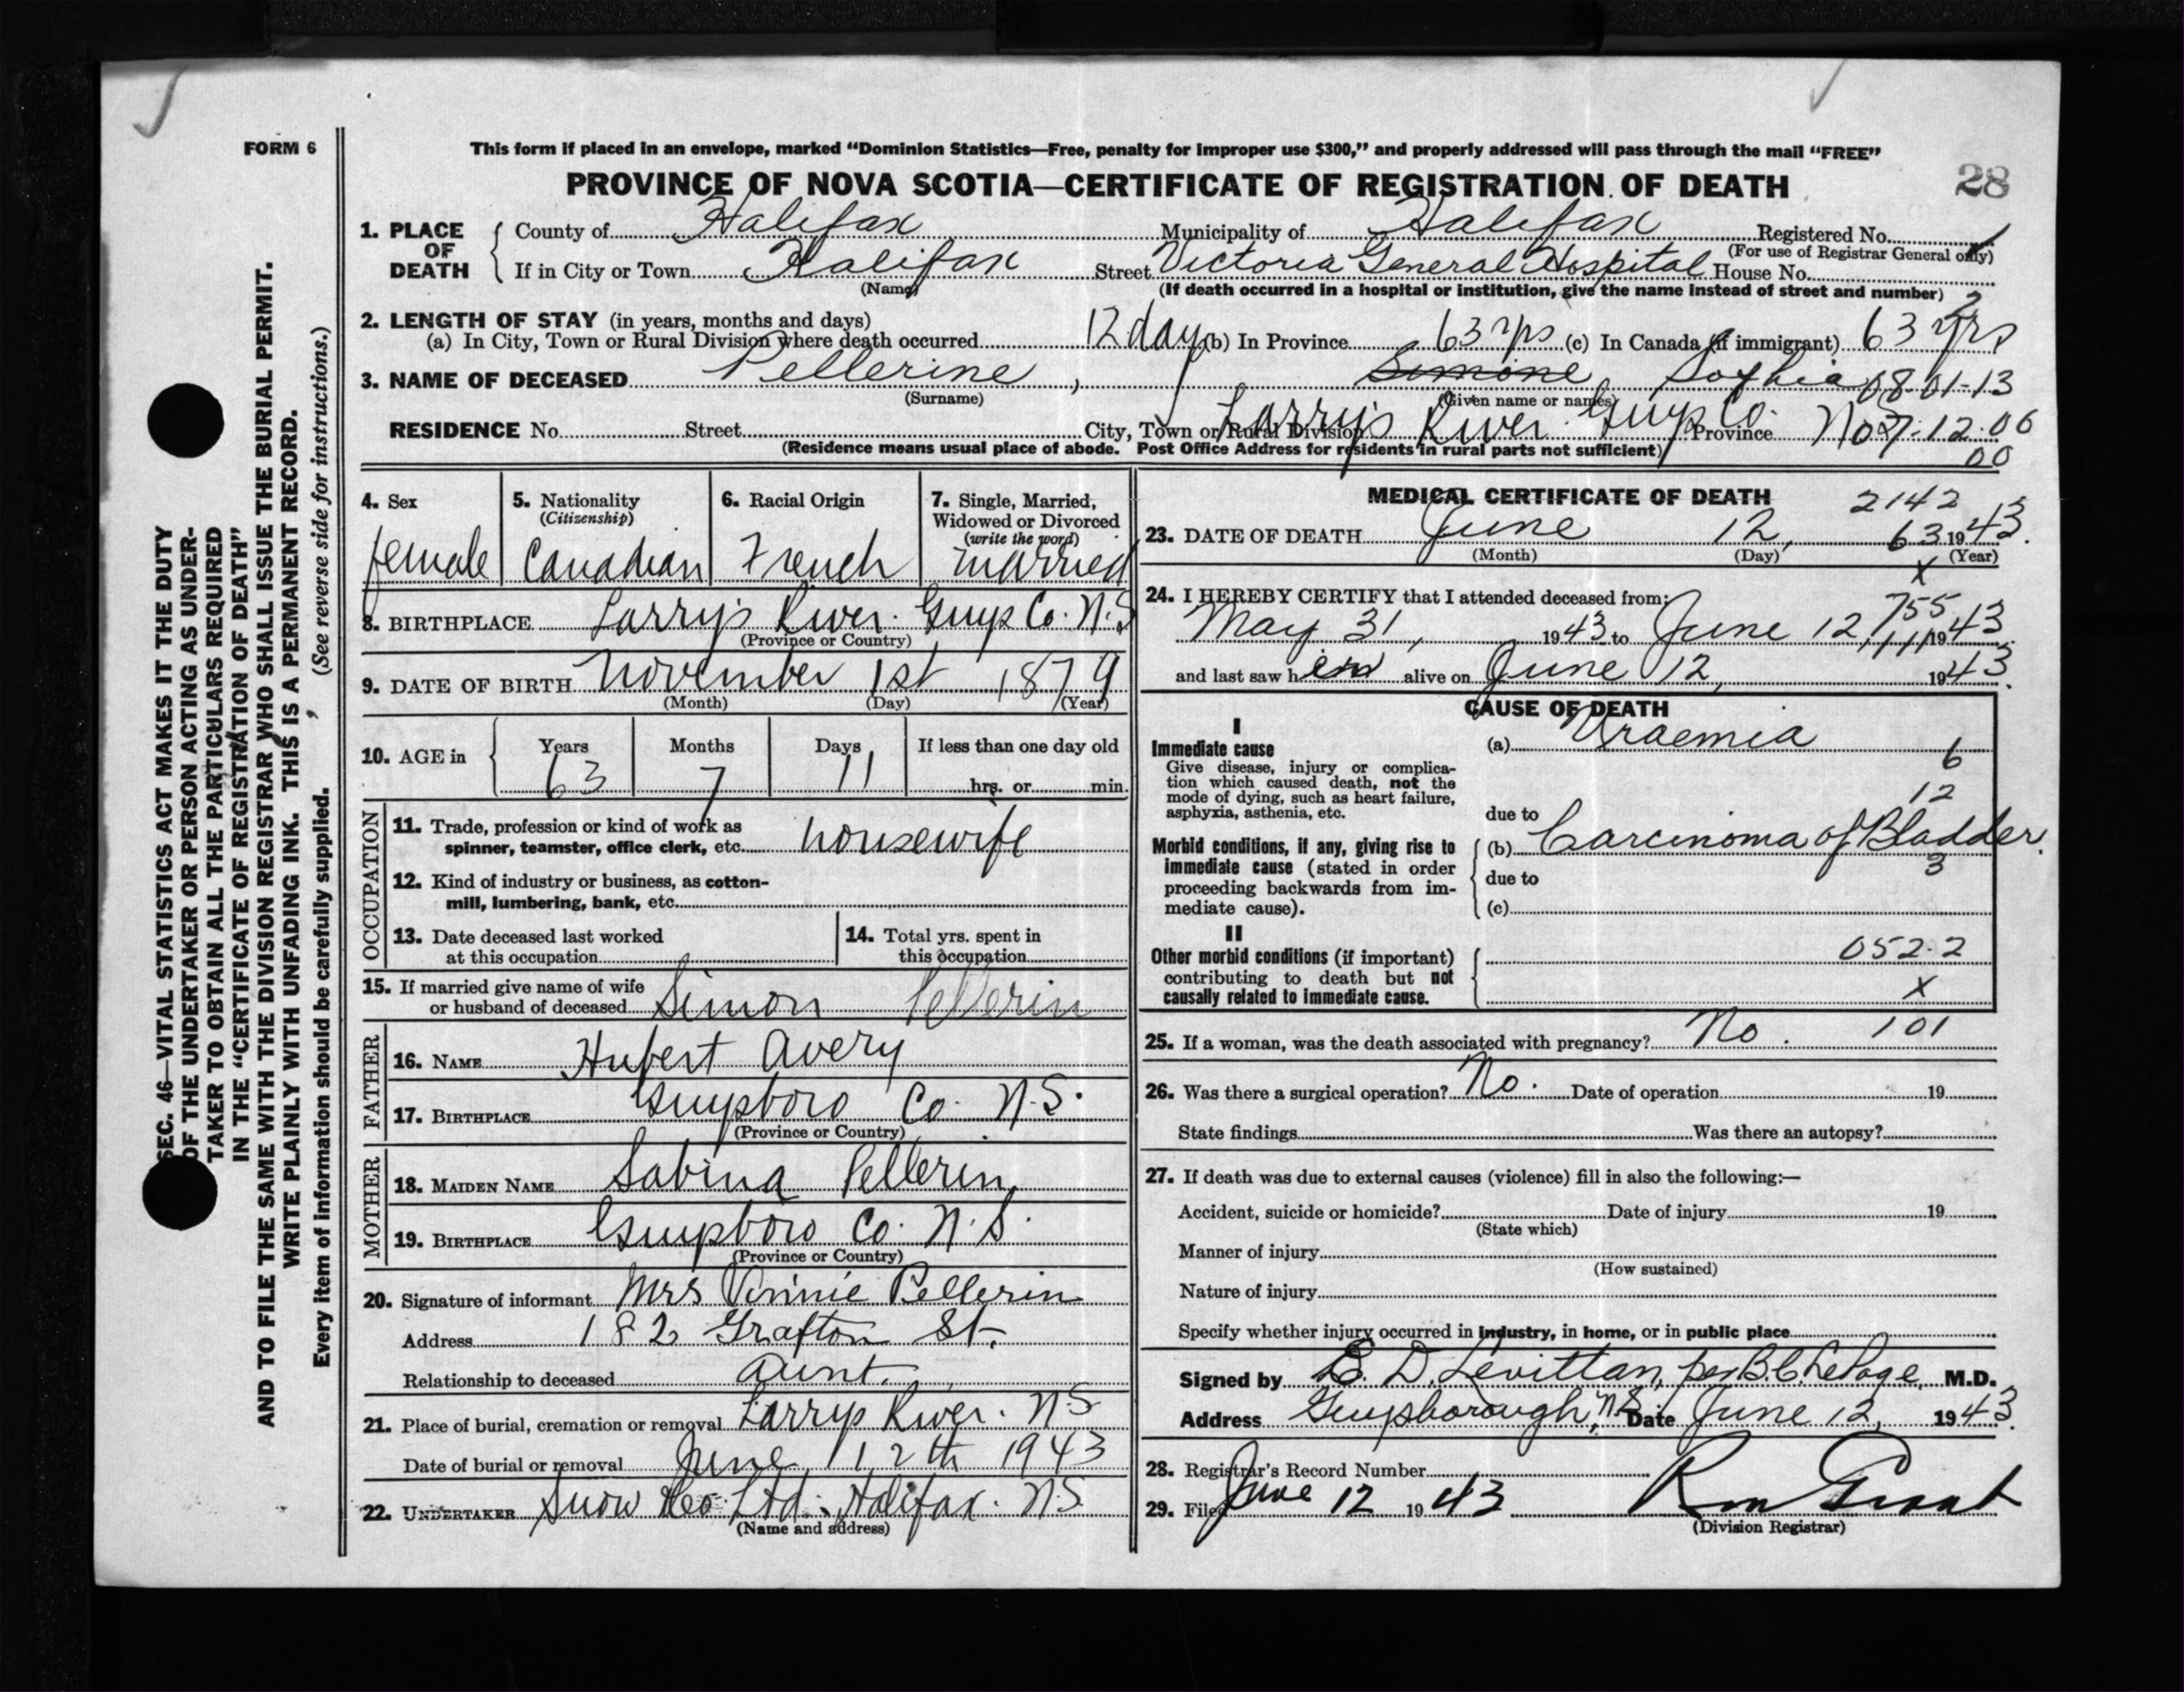 FORM 6
This form if placed in an envelope, marked "Dominion Statistics—Free, penalty for improper use $300," and properly addressed will pass through the mail "FREE"
PROVINCE OF NOVA SCOTIA—CERTIFICATE OF REGISTRATION OF DEATH
28
1. PLACE OF DEATH
County of Halifax Municipality of Halifax Registered No.
(For use of Registrar General only)
If in City or Town Halifax Street Victoria General Hospital House No.
(Name) (If death occurred in a hospital or institution, give the name instead of street and number)
2
2. LENGTH OF STAY (in years, months and days)
(a) In City, Town or Rural Division where death occurred 12 days (b) In Province 63 yrs (c) In Canada (if immigrant) 63 yrs
3. NAME OF DECEASED Pellerine , Simone Sophia 08-01-13
(Surname) (Given name or names)
RESIDENCE No. Street City, Town or Rural Division Larry's River Guys Co. Province 7-12-06
00
(Residence means usual place of abode. Post Office Address for residents in rural parts not sufficient)
4. Sex
female
5. Nationality
(Citizenship)
Canadian
6. Racial Origin
French
7. Single, Married,
Widowed or Divorced
(write the word)
married
8. BIRTHPLACE Larry's River. Guys Co. N.S
(Province or Country)
9. DATE OF BIRTH November 1st 1879
(Month) (Day) (Year)
10. AGE in
Years Months Days If less than one day old
63 7 11 hrs. or min.
OCCUPATION
11. Trade, profession or kind of work as
spinner, teamster, office clerk, etc. housewife
12. Kind of industry or business, as cotton-
mill, lumbering, bank, etc.
13. Date deceased last worked
at this occupation
14. Total yrs. spent in
this occupation
15. If married give name of wife
or husband of deceased Simon Pellerin
FATHER
16. NAME Hubert Avery
17. BIRTHPLACE Guysboro Co. N.S.
(Province or Country)
MOTHER
18. MAIDEN NAME Sabina Pellerin
19. BIRTHPLACE Guysboro Co. N.S.
(Province or Country)
20. Signature of informant Mrs Vinnie Pellerin
Address 182 Grafton St.
Relationship to deceased aunt.
21. Place of burial, cremation or removal Larrys River. N.S
Date of burial or removal June 12th 1943
22. UNDERTAKER Snow & Co. Ltd. Halifax. N.S.
(Name and address)
MEDICAL CERTIFICATE OF DEATH
2142
23. DATE OF DEATH June 12, 63 1943.
(Month) (Day) (Year)
X
24. I HEREBY CERTIFY that I attended deceased from:
755
May 31, 1943 to June 12, 1943
and last saw her alive on June 12, 1943.
CAUSE OF DEATH
I
Immediate cause
Give disease, injury or complica-
tion which caused death, not the
mode of dying, such as heart failure,
asphyxia, asthenia, etc.
(a) Uraemia
6
12
due to
Morbid conditions, if any, giving rise to
immediate cause (stated in order
proceeding backwards from im-
mediate cause).
(b) Carcinoma of Bladder.
3
due to
(c)
II
Other morbid conditions (if important)
contributing to death but not
causally related to immediate cause.
052.2
X
101
25. If a woman, was the death associated with pregnancy? No.
26. Was there a surgical operation? No. Date of operation 19
State findings Was there an autopsy?
27. If death was due to external causes (violence) fill in also the following:—
Accident, suicide or homicide? Date of injury 19
(State which)
Manner of injury
(How sustained)
Nature of injury
Specify whether injury occurred in industry, in home, or in public place
Signed by D. Levittan, per B.C. LePage M.D.
Address Guysborough, N.S. Date June 12, 1943.
28. Registrar's Record Number
29. Filed June 12 1943
(Division Registrar)
SEC. 46—VITAL STATISTICS ACT MAKES IT THE DUTY
OF THE UNDERTAKER OR PERSON ACTING AS UNDER-
TAKER TO OBTAIN ALL THE PARTICULARS REQUIRED
IN THE "CERTIFICATE OF REGISTRATION OF DEATH"
AND TO FILE THE SAME WITH THE DIVISION REGISTRAR WHO SHALL ISSUE THE BURIAL PERMIT.
WRITE PLAINLY WITH UNFADING INK. THIS IS A PERMANENT RECORD.
Every item of information should be carefully supplied. (See reverse side for instructions.)